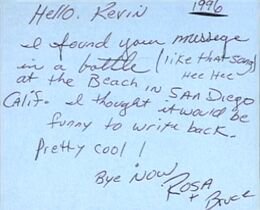 1996
Hello. Kevin
I found your mussege
in a bottle (like that song)
Hee Hee
at the Beach in SAN DIEGO
CALIF. I thought it would be
funny to write back.
Pretty cool!
Bye NOW
ROSA
+ Bruce